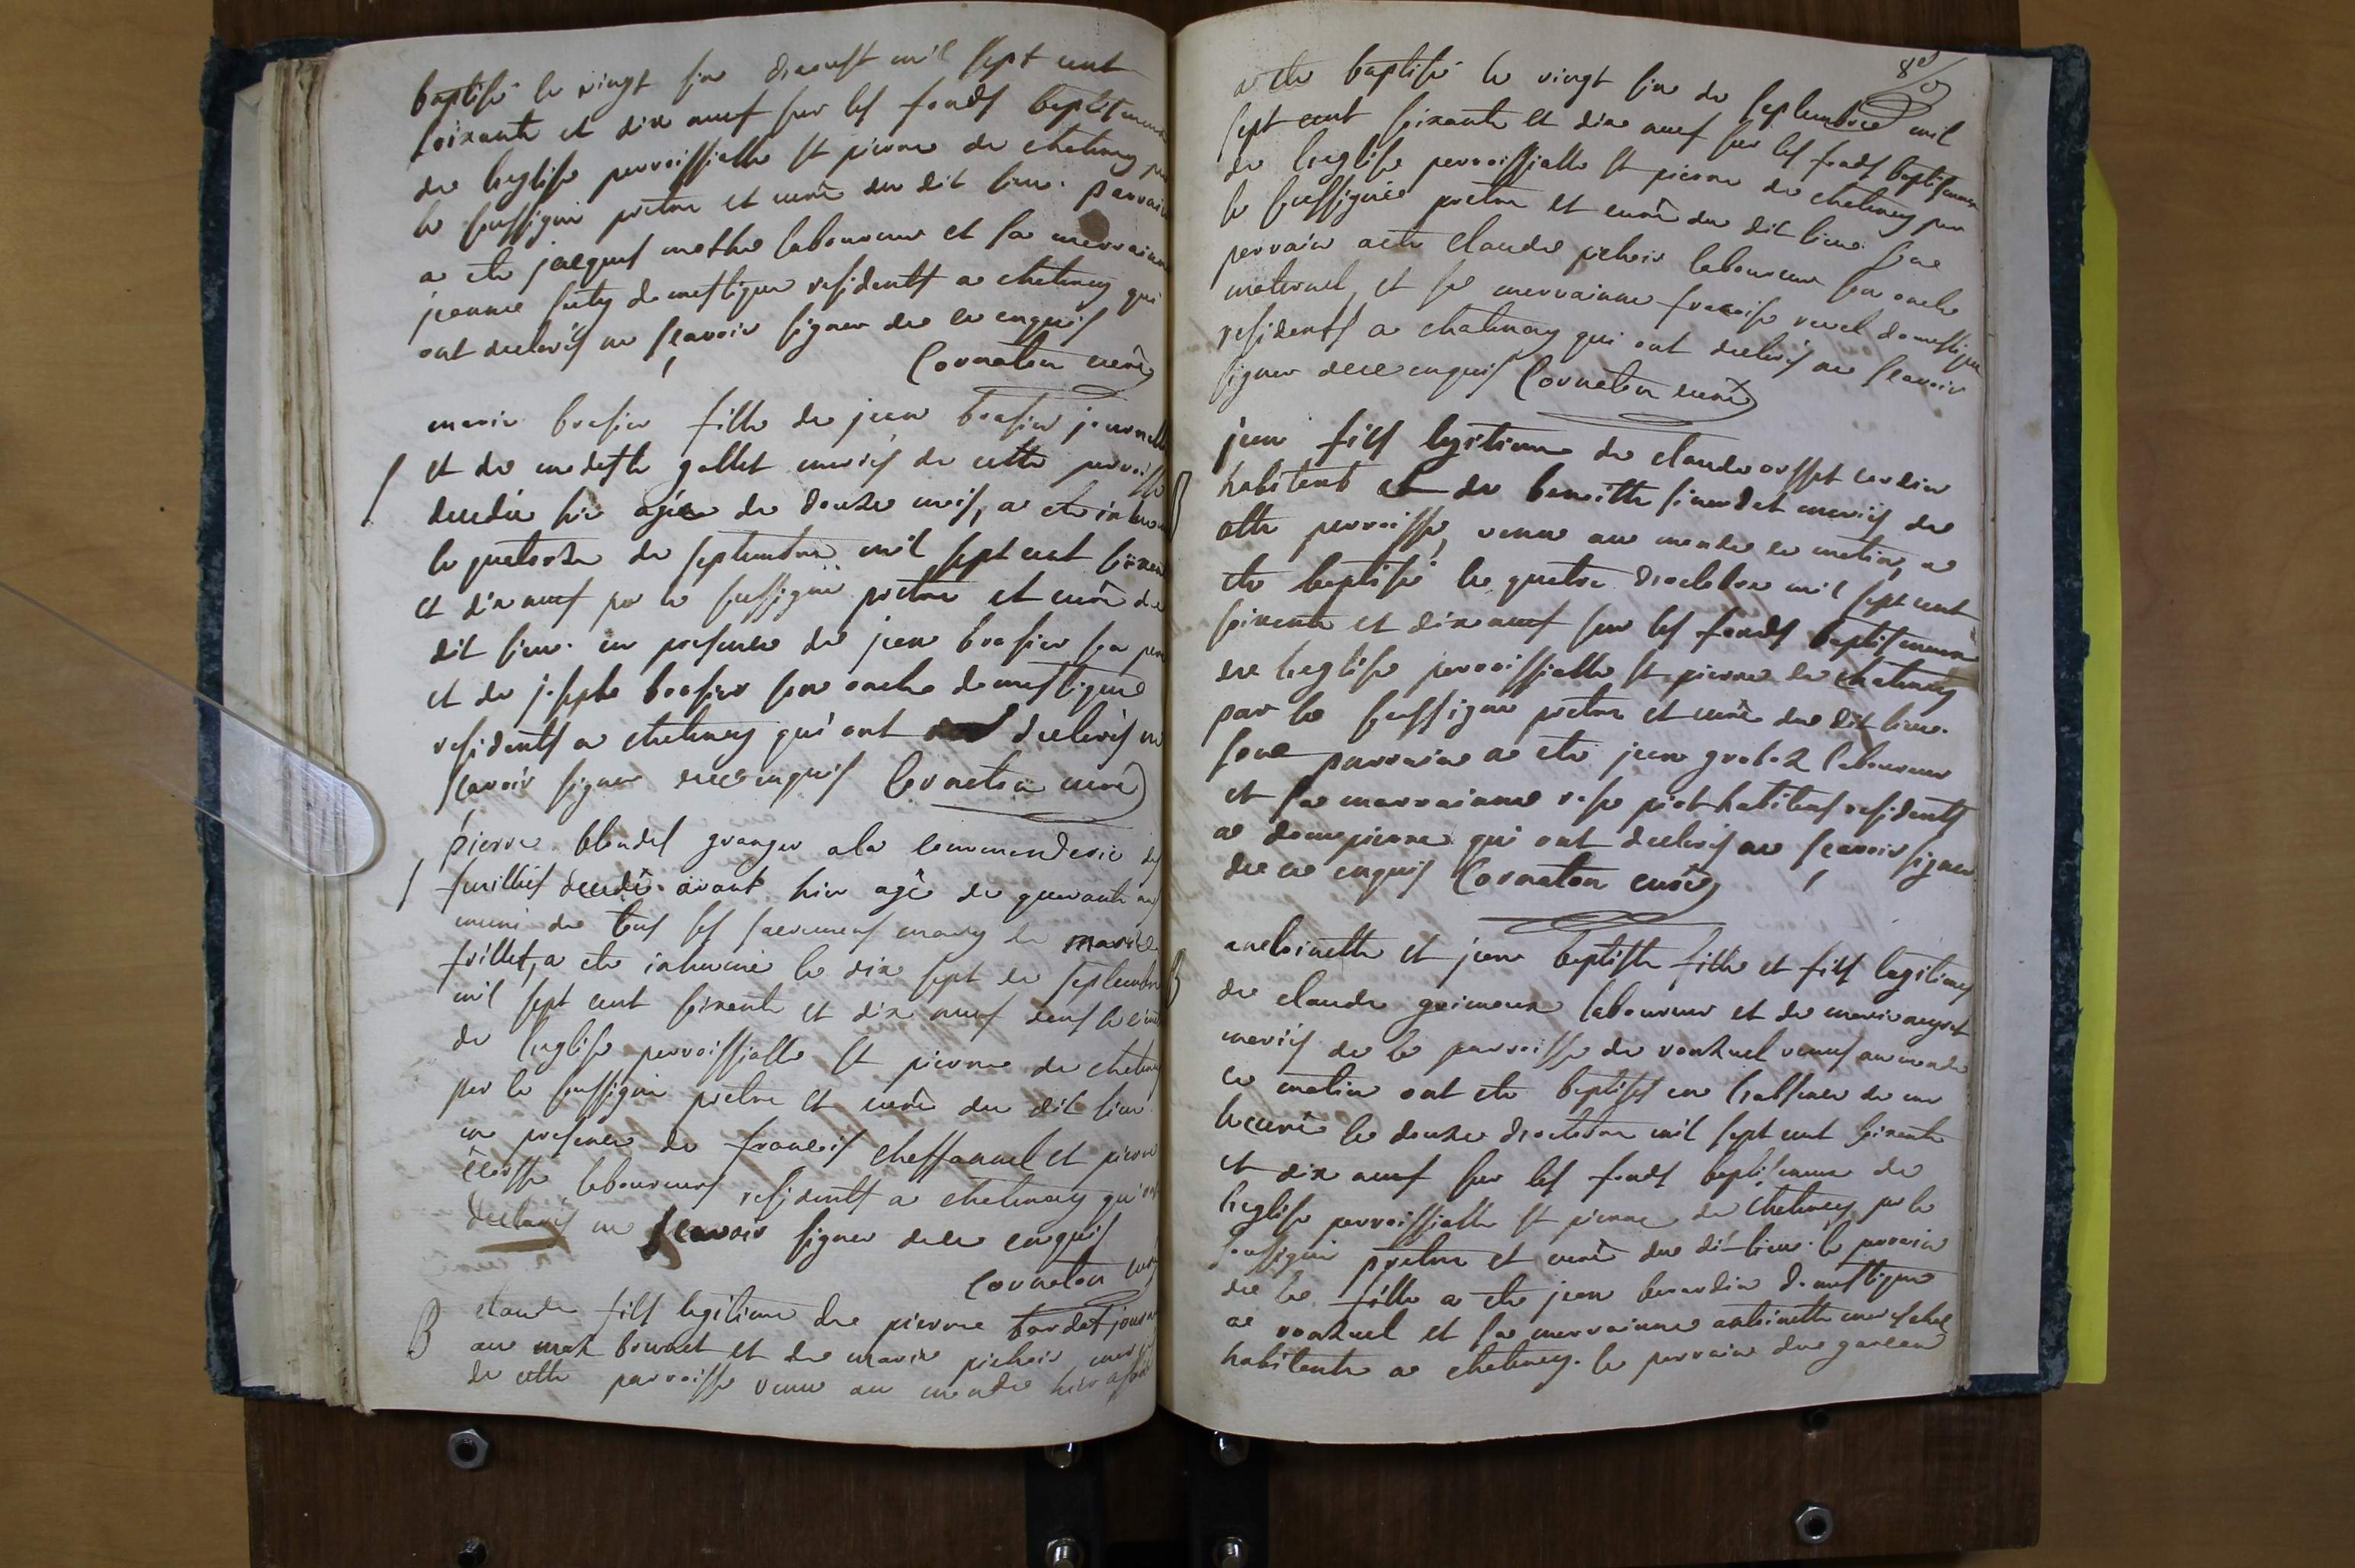 baptisé le vingt six daoust mil sept cent
soixante et dix neuf sur les fonds baptismaux
de leglise parroissialle st pierre de chatenay par
le soussigné pretre et curé du dit lieu. parrain
a ete jacques mathie laboureur et sa marrainne
jeanne domestique residents a chatenay qui
ont declarés ne scavoir signer de ce enquis
Cornaton curé
marie brasier fille de jean brasier journallier
et de modeste gallet mariés de cette parroisse
decedée hier agée de douze mois, a ete inhumée
le quatorze de septembre mil sept cent soixante
et dix neuf par le soussigné pretre et curé du
dit lieu. en presence de jean brasier son pere
et de joseph brasier son oncle domestique
residents a chatenay qui ont declarés ne
scavoir signer de ce enquis Cornaton curé
pierre blondel granger a la commanderie des
feuillés decedé avant hier agé de quarante ans
muni de tous les sacremens mary de marie
frillet, a ete inhumé le dix sept de septembre
mil sept cent soixante et dix neuf dans le
de leglise parroissialle st pierre de chatenay
par le soussigné pretre et curé du dit lieu
en presence de francois chaffannel et pierre
laboureurs residents a chatenay qui ont
declarés ne scavoir signer de ce enquis
Cornaton curé
B claude fils legitime de pierre tardet
au max bonnet et de marie pichoir mariés
de cette parroisse venu au monde hier
a ete baptisé le vingt six de septembre mil
sept cent soixante et dix neuf sur les fonds baptismaux
de leglise parroissialle st pierre de chatenay par
le soussigné pretre et curé du dit lieu. son
parrain a ete claude pichoir laboureur son oncle
maternel, et sa marrainne francoise revel domestique
residents a chatenay qui ont declarés ne scavoir
signer de ce enquis Cornaton curé
B jean fils legitime de claude cardin
habitant et de benoitte mariés de
cette parroisse, venu au monde ce matin, a
ete baptisé le quatre doctobre mil sept cent
soixante et dix neuf sur les fonds baptismaux
de leglise parroissialle st pierre de chatenay
par le soussigné pretre et curé du dit lieu.
son parrain a ete jean groboz laboureur
et sa marrainne rose piot habitans residents
a dompierre qui ont declarés ne scavoir signer
de ce enquis Cornaton curé
B antoinette et jean baptiste fille et fils legitimes
de claude laboureur et de marie
mariés de la parroisse de ronzuel venus au monde
ce matin ont ete baptisés en labsence de mr
le curé le douze doctobre mil sept cent soixante
et dix neuf sur les fonds baptismaux de
leglise parroissialle st pierre de chatenay par le
soussigné pretre et curé du dit lieu. le parrain
de la fille a ete jean berardin domestique
a ronzuel et sa marrainne antoinette marechal
habitante a chatenay. le parrain du garcon